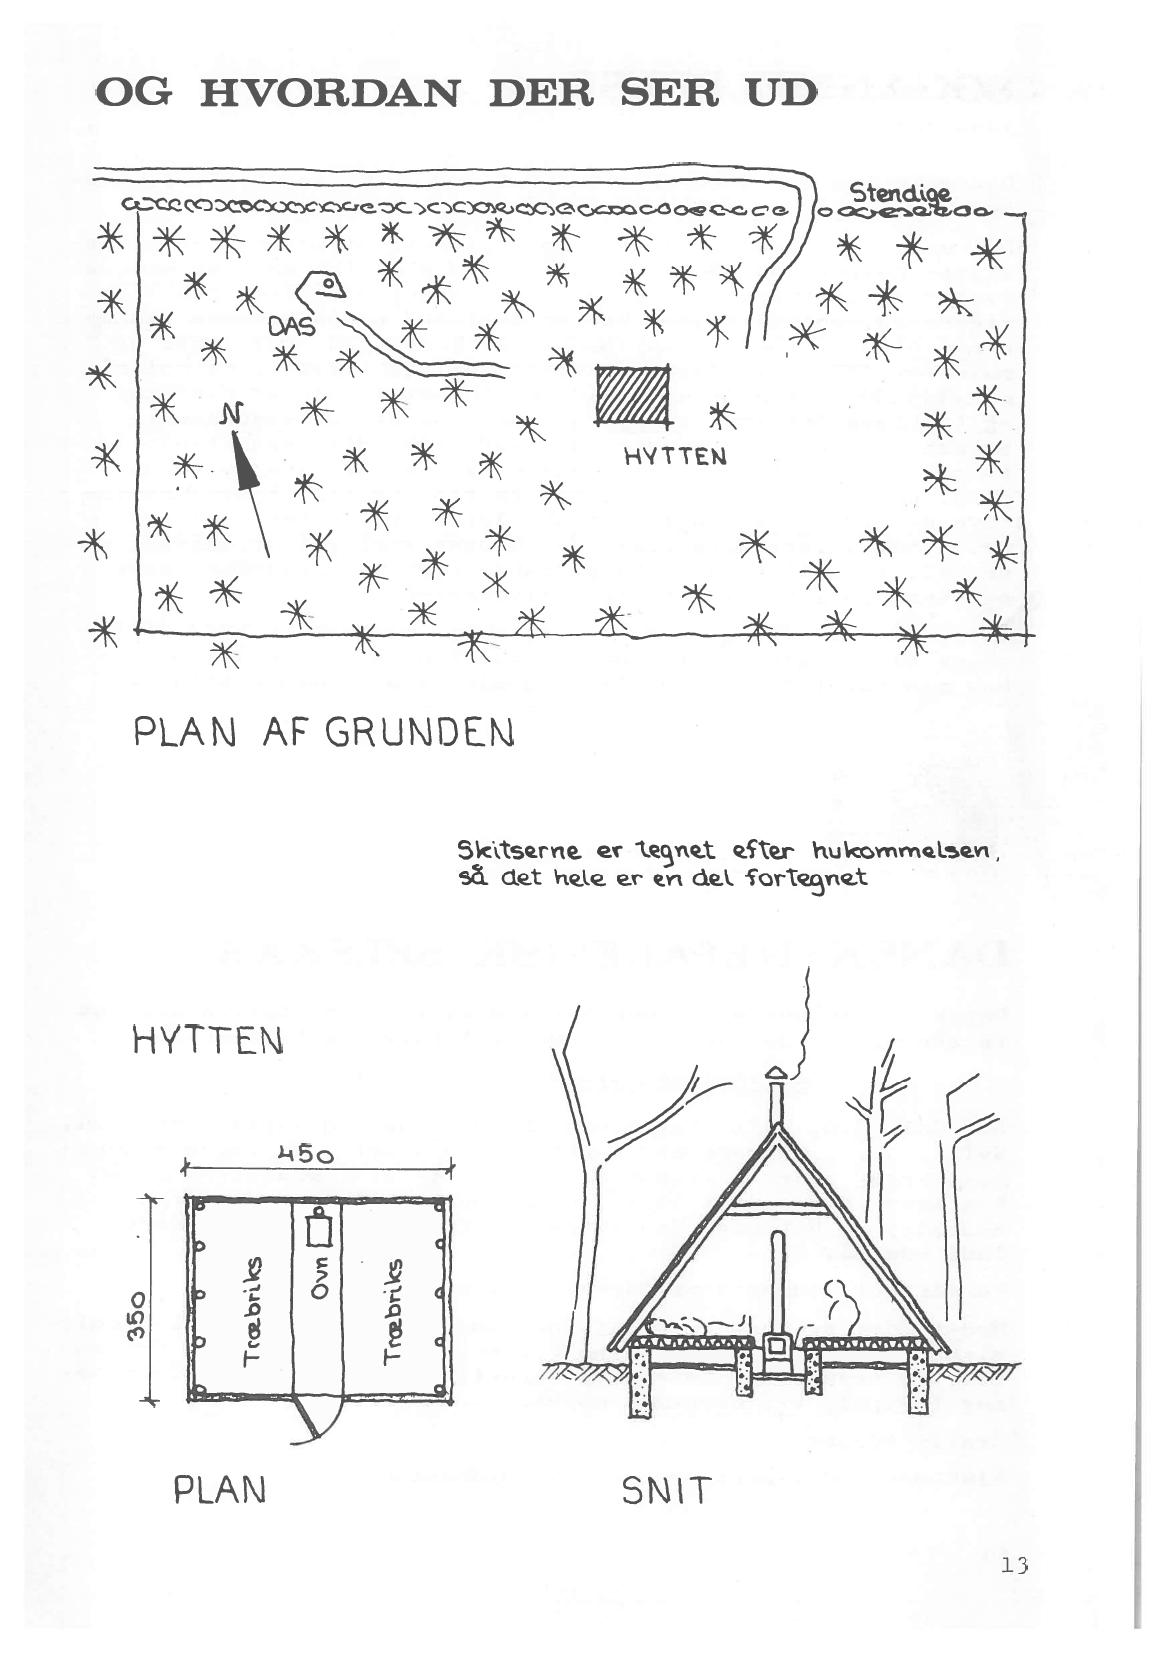 OG HVORDAN DER SER UD
Stendige
DAS
N
HYTTEN
PLAN AF GRUNDEN
Skitserne er tegnet efter hukommelsen,
så det hele er en del fortegnet
HYTTEN
450
350
Træbriks
Ovn
Træbriks
PLAN
SNIT
13